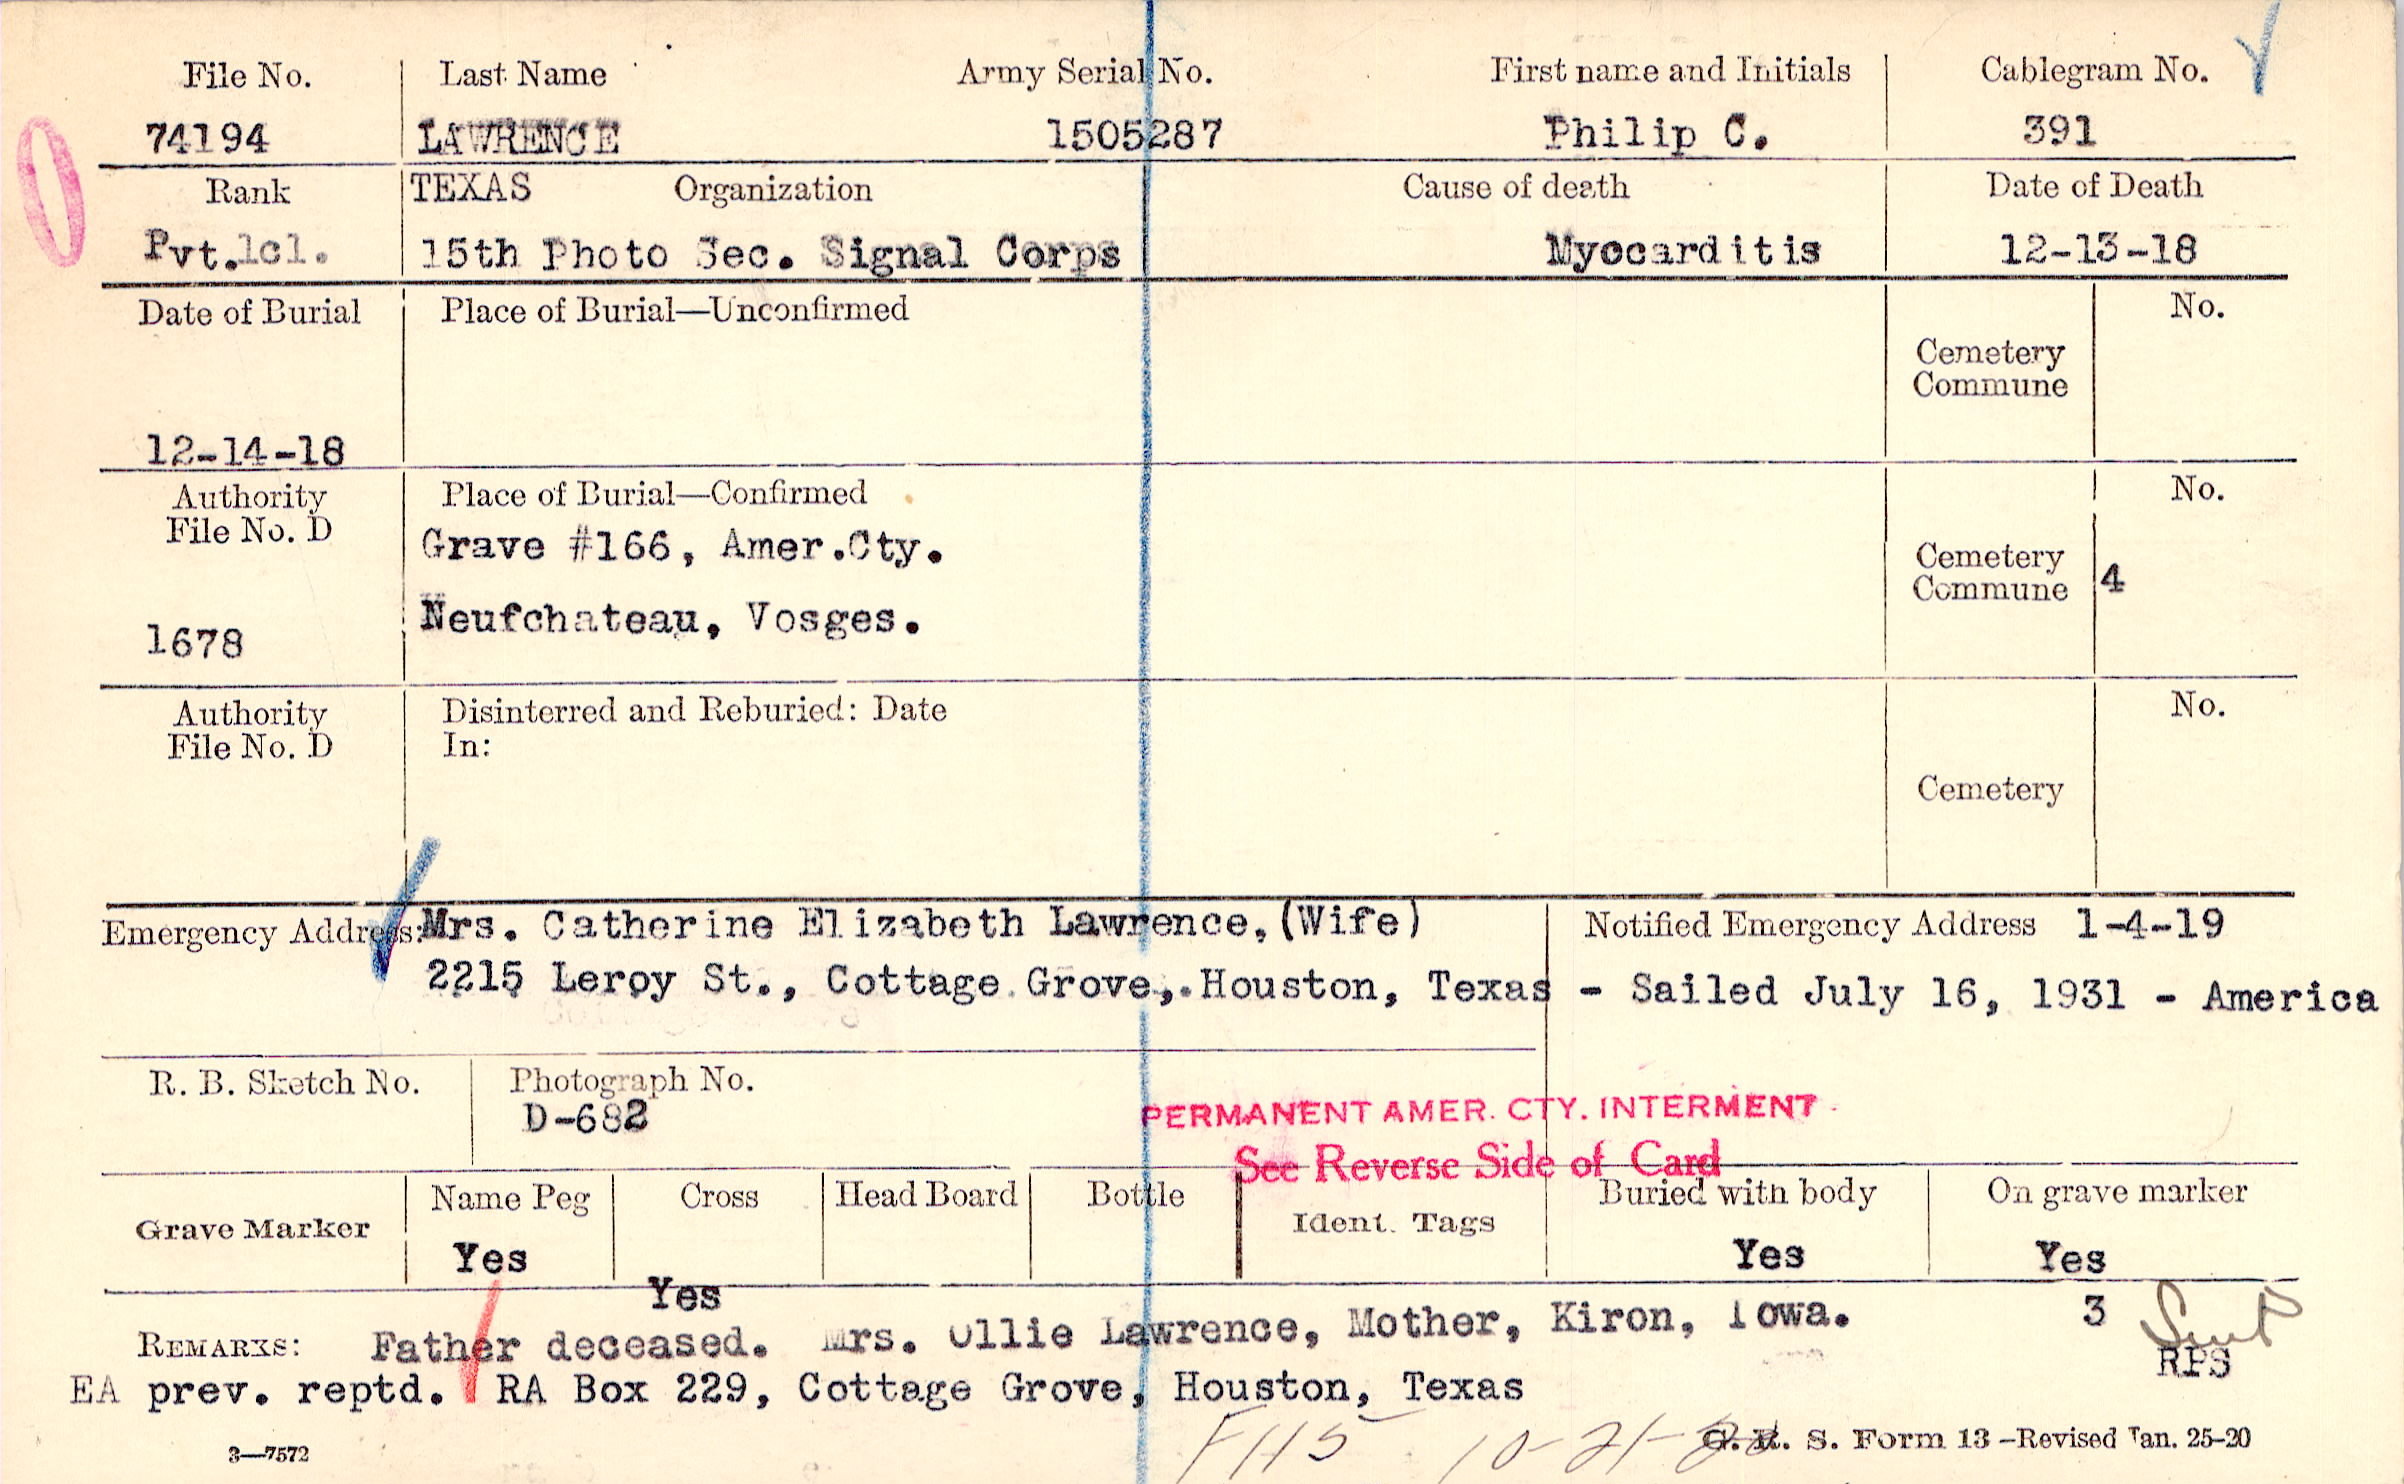 File No. Last Name Army Serial No. First name and Initials Cablegram No.
74194 LAWRENCE 1505287 Philip C. 391
Rank TEXAS Organization Cause of death Date of Death
Pvt.1cl. 15th Photo Sec. Signal Corps Myocarditis 12-13-18
Date of Burial Place of Burial—Unconfirmed No.
Cemetery
Commune
12-14-18
Authority Place of Burial—Confirmed No.
File No. D
Grave #166, Amer.Cty.
Cemetery
Commune 4
Neufchateau, Vosges.
1678
Authority Disinterred and Reburied: Date No.
File No. D In:
Cemetery
Emergency Address: Mrs. Catherine Elizabeth Lawrence, (Wife) Notified Emergency Address 1-4-19
2215 Leroy St., Cottage Grove, Houston, Texas - Sailed July 16, 1931 - America
R. B. Sketch No. Photograph No.
D-682
PERMANENT AMER. CTY. INTERMENT
See Reverse Side of Card
Grave Marker Name Peg Cross Head Board Bottle Ident. Tags Buried with body On grave marker
Yes Yes Yes
Yes
3
REMARKS: Father deceased. Mrs. Ollie Lawrence, Mother, Kiron, Iowa.
RPS
EA prev. reptd. RA Box 229, Cottage Grove, Houston, Texas
FHS 10-21-
3—7572 G. R. S. Form 13—Revised Jan. 25-20